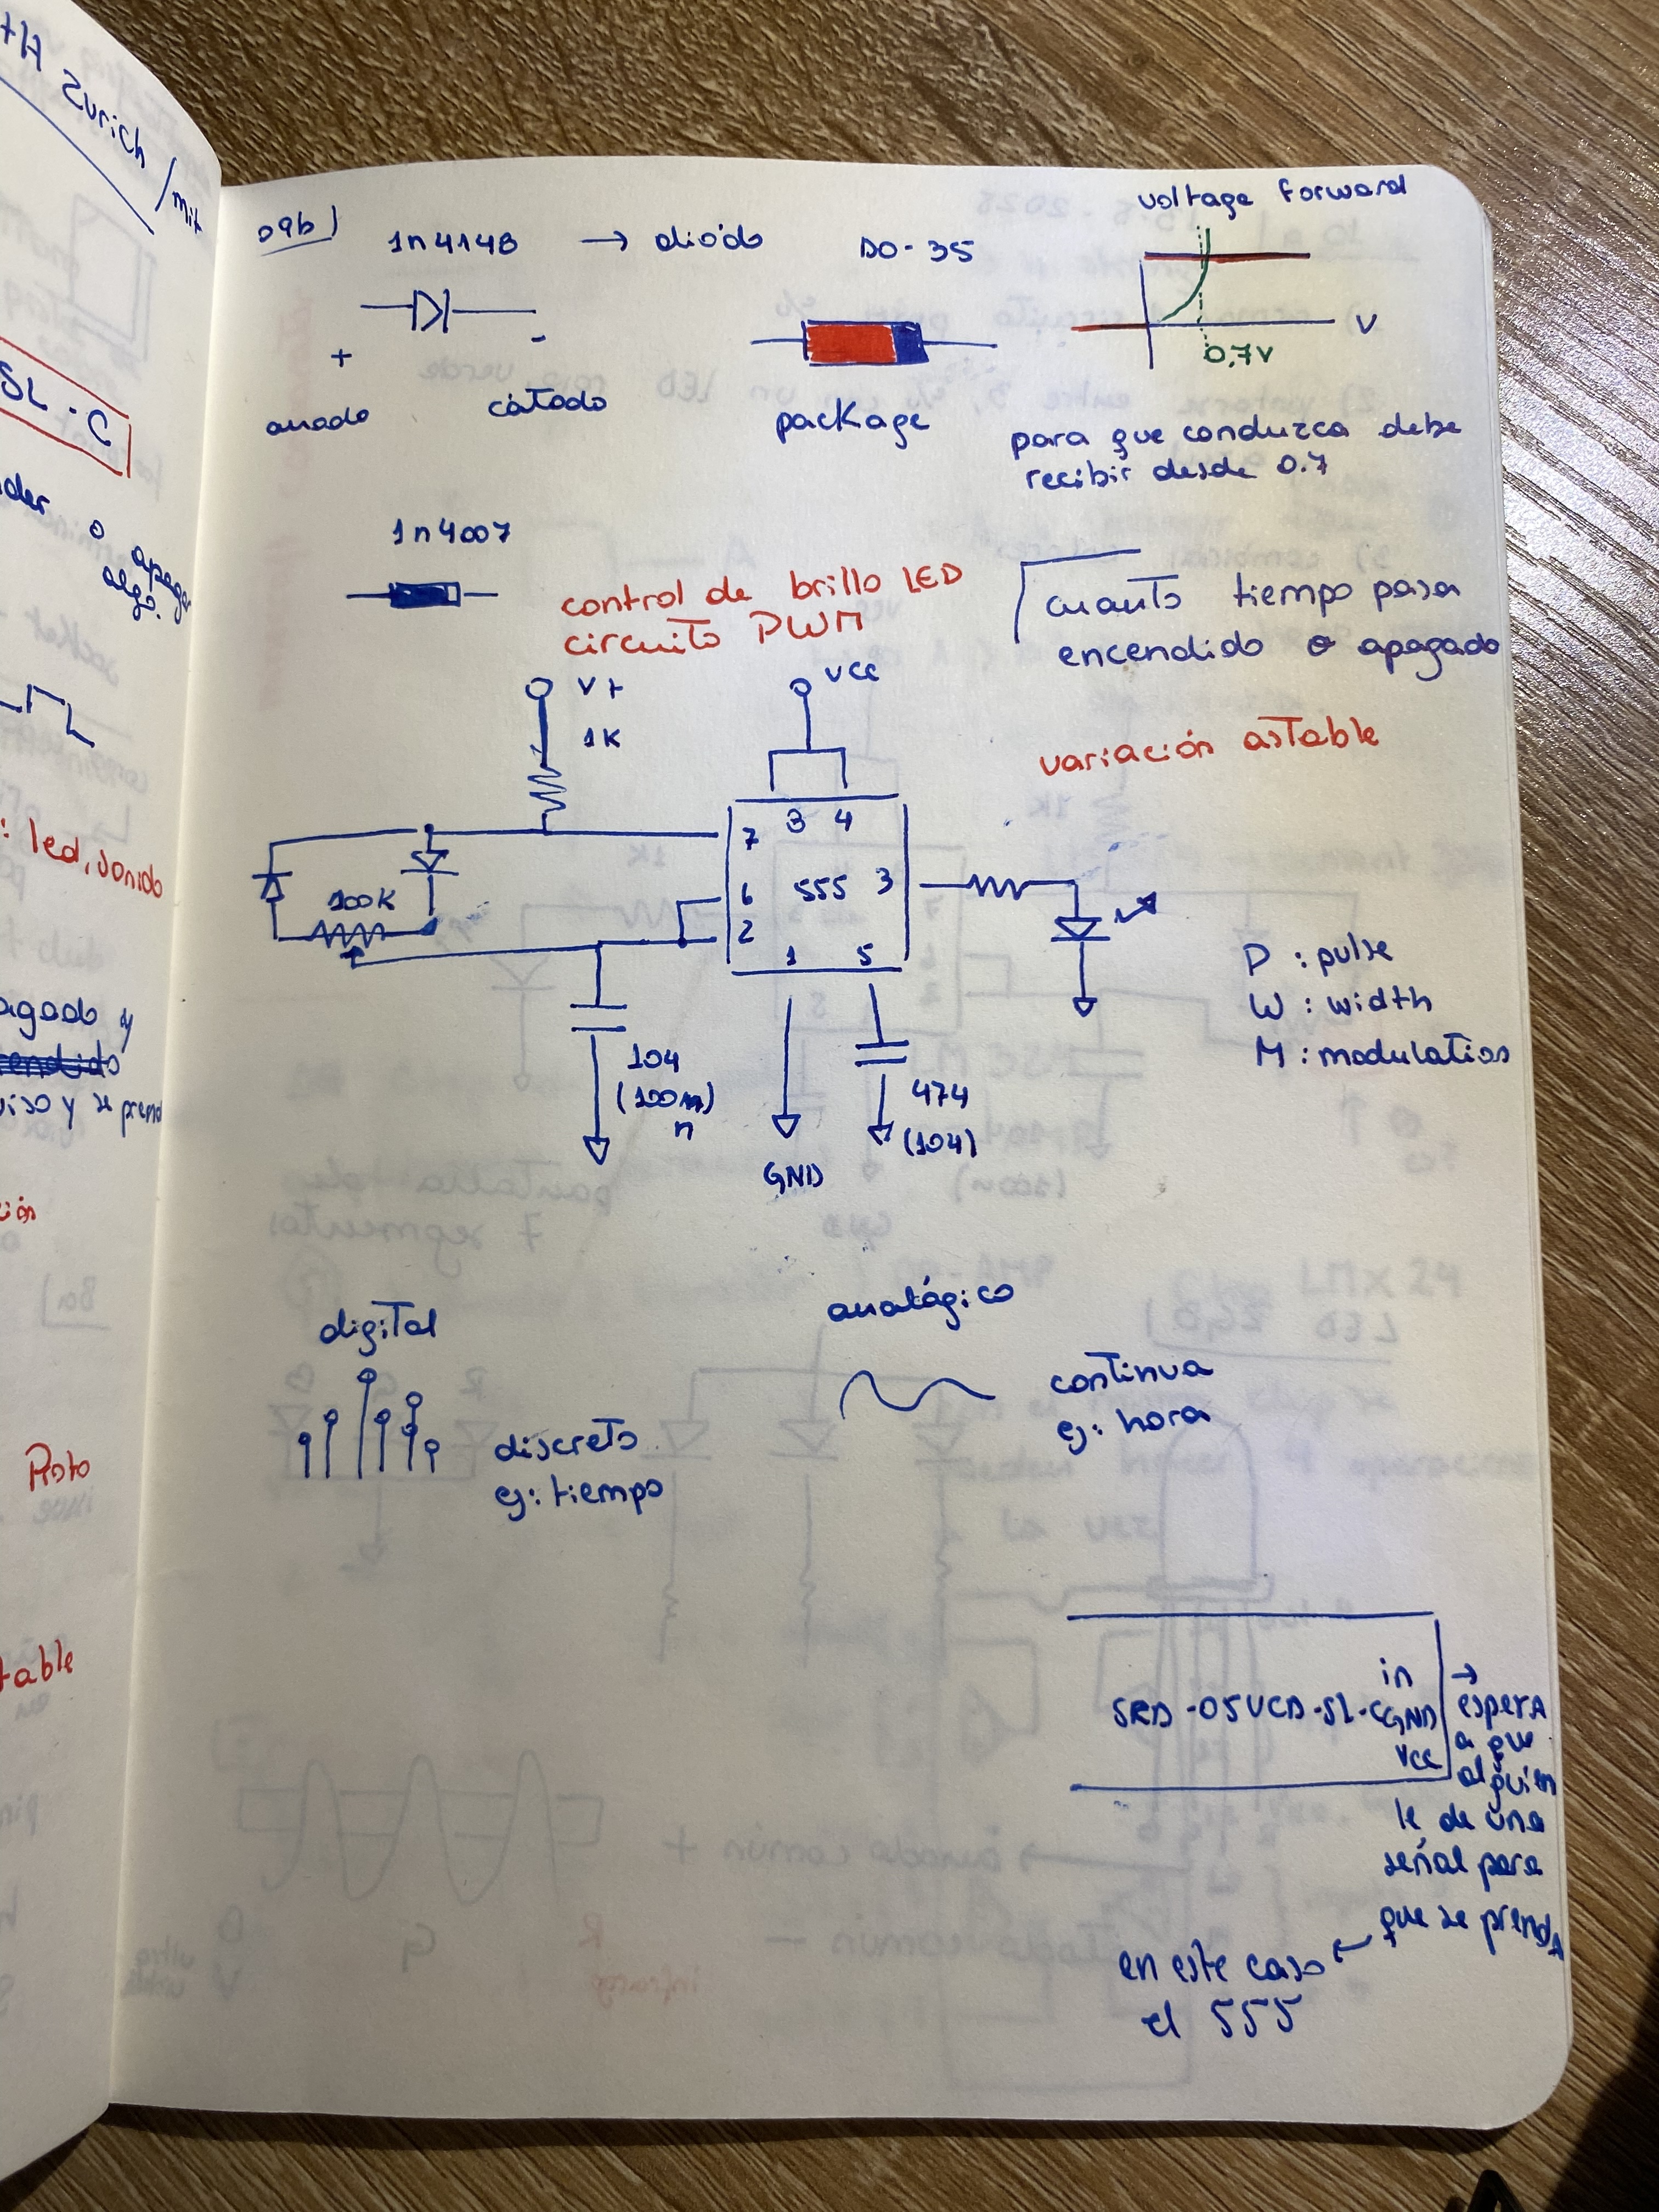 Zurich / mit
SL-C
o apagar
algo.
: led, sonido
agado y
y se prend
Proto
table
09b)
1n4148 → diodo
DO-35
voltage forward
+
-
anodo
cátodo
package
V
0,7V
para que conduzca debe
recibir desde 0.7
1n4007
control de brillo LED
circuito PWM
cuanto tiempo pasa
encendido o apagado
variación astable
V+
1K
VCC
7
3 4
6
555
3
2
1
5
100K
104
(100m)
n
GND
474
(104)
P : pulse
W : width
M : modulation
digital
discreto
ej: tiempo
analógico
continua
ej: hora
in
SRD-05VCD-SL-C
GND
VCC
→
espera
a que
alguien
le de una
señal para
que se prenda
en este caso ←
el 555